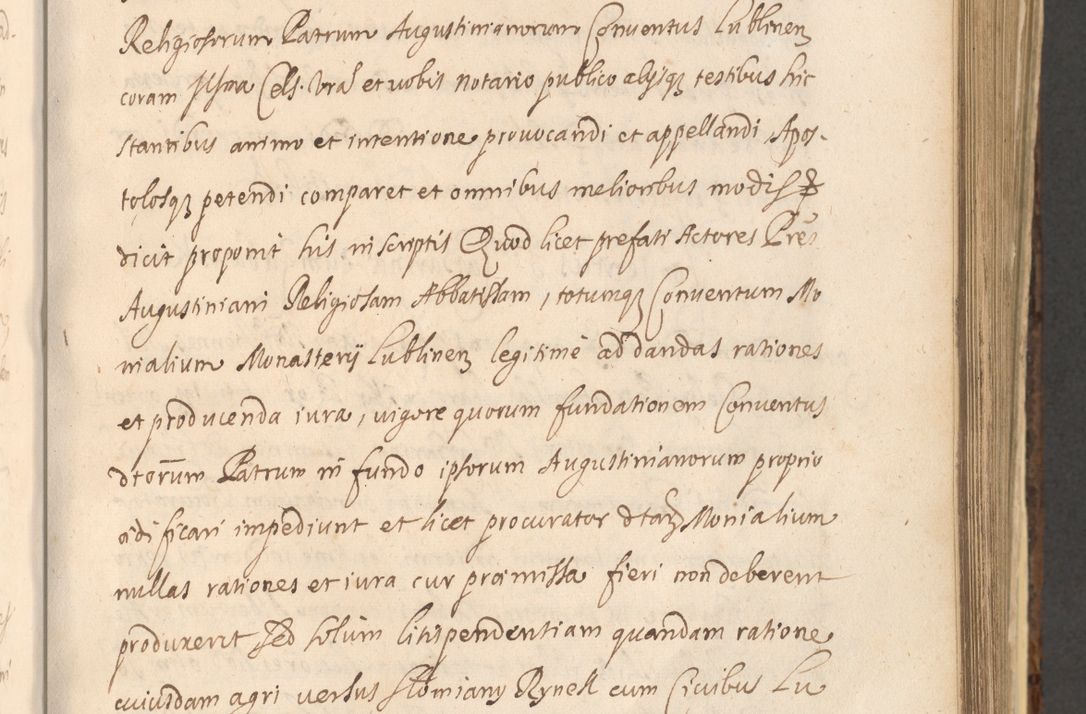 Religiosorum Patrum Augustinianorum Conventus Lublinen
coram Illma Cels. Vra et vobis Notario publico alysq testibus hic
stantibus animo et intentione provocandi et appellandi Apos-
tolosq petendi comparet et omnibus melioribus modis
dicit proponit his in scriptis Quod licet prefati Actores Pres
Augustiniani Religiosam Abbatissam, totumq Conventum Mo
nialium Monasterij Lublinen legitimè ad dandas rationes
et producenda iura, vigore quorum fundationem Conventus
dtorum Patrum in fundo ipsorum Augustinianorum proprio
ædificari impediunt et licet procurator dtarz Monialium
nullas rationes et iura cur præmissa fieri non deberent
produxerit sed solùm litispendentiam quandam ratione
cuiusdam agri versus słomiany Rynek cum Civibus Lu